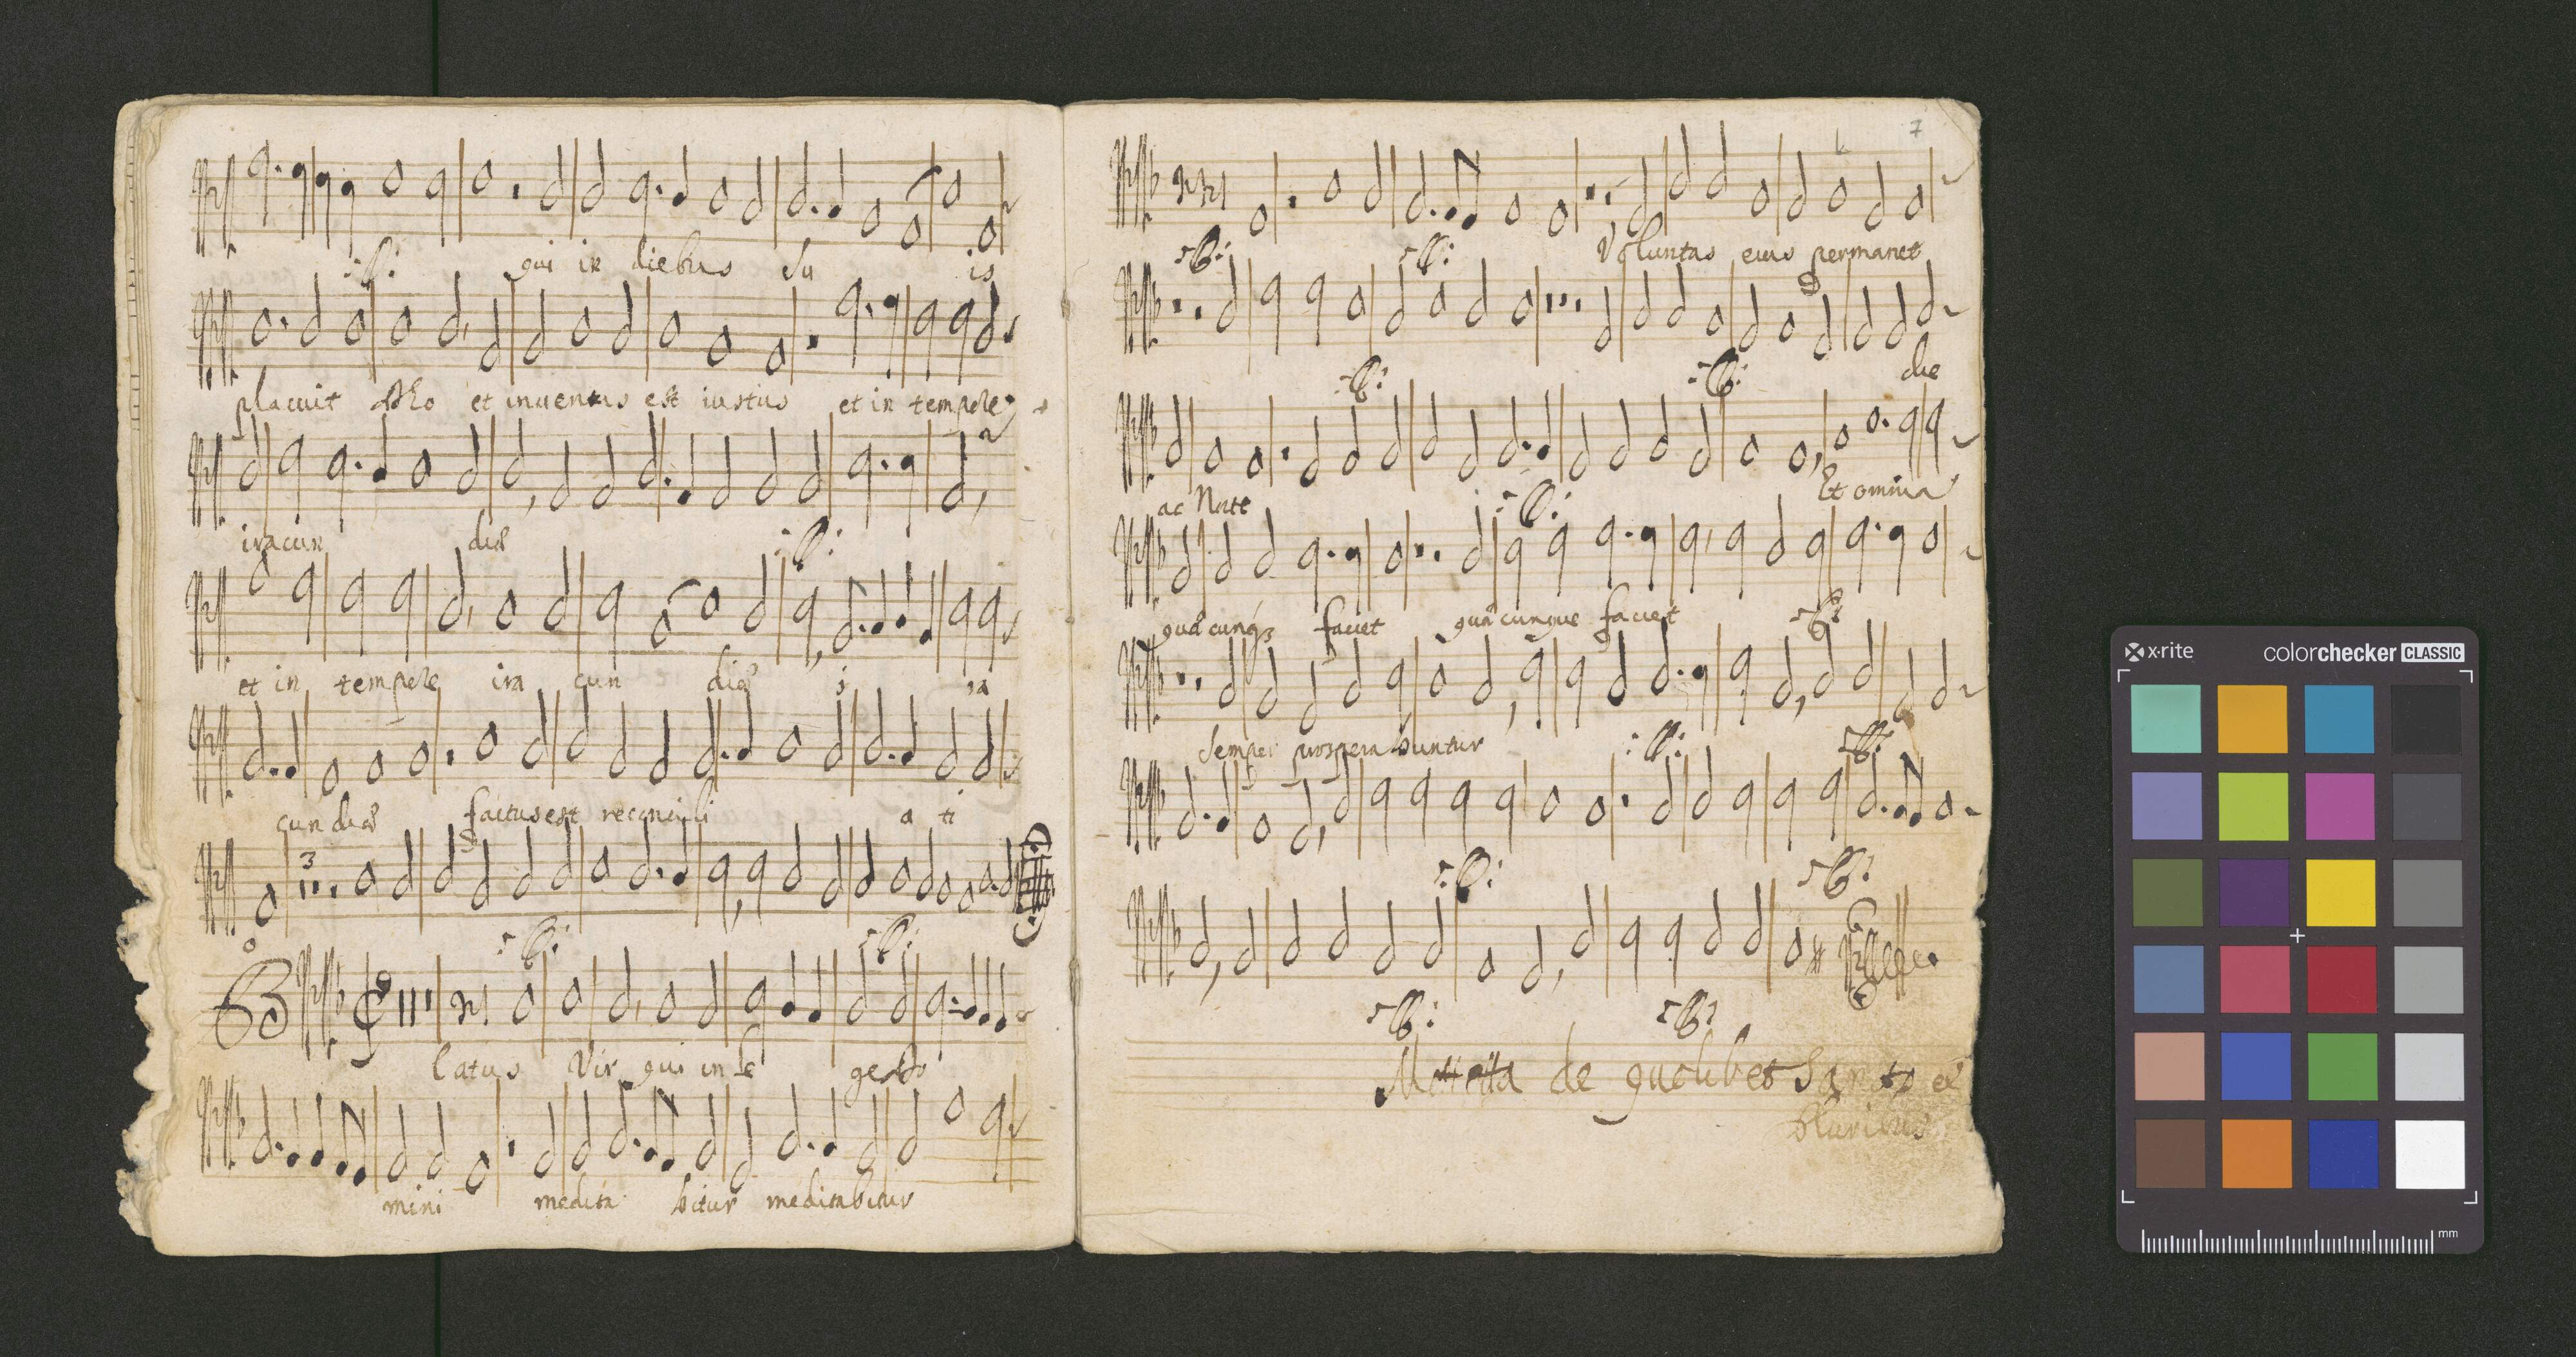 qui in diebus su is
placuit Deo et inventus est iustus et in tempore
iracun diæ
et in tempore ira cun diæ i ra
cun diæ factus est reconcili a ti
3
B
latus Vir qui in le ge Do
mini medita bitur meditabitur
7
Voluntas eius permanet
die
ac Nocte Et omnia
quæcunqz faciet quæcunque faciet
semper prosperabuntur
Motetta de quolibet Sancto et
pluribus
x-rite colorchecker CLASSIC
mm